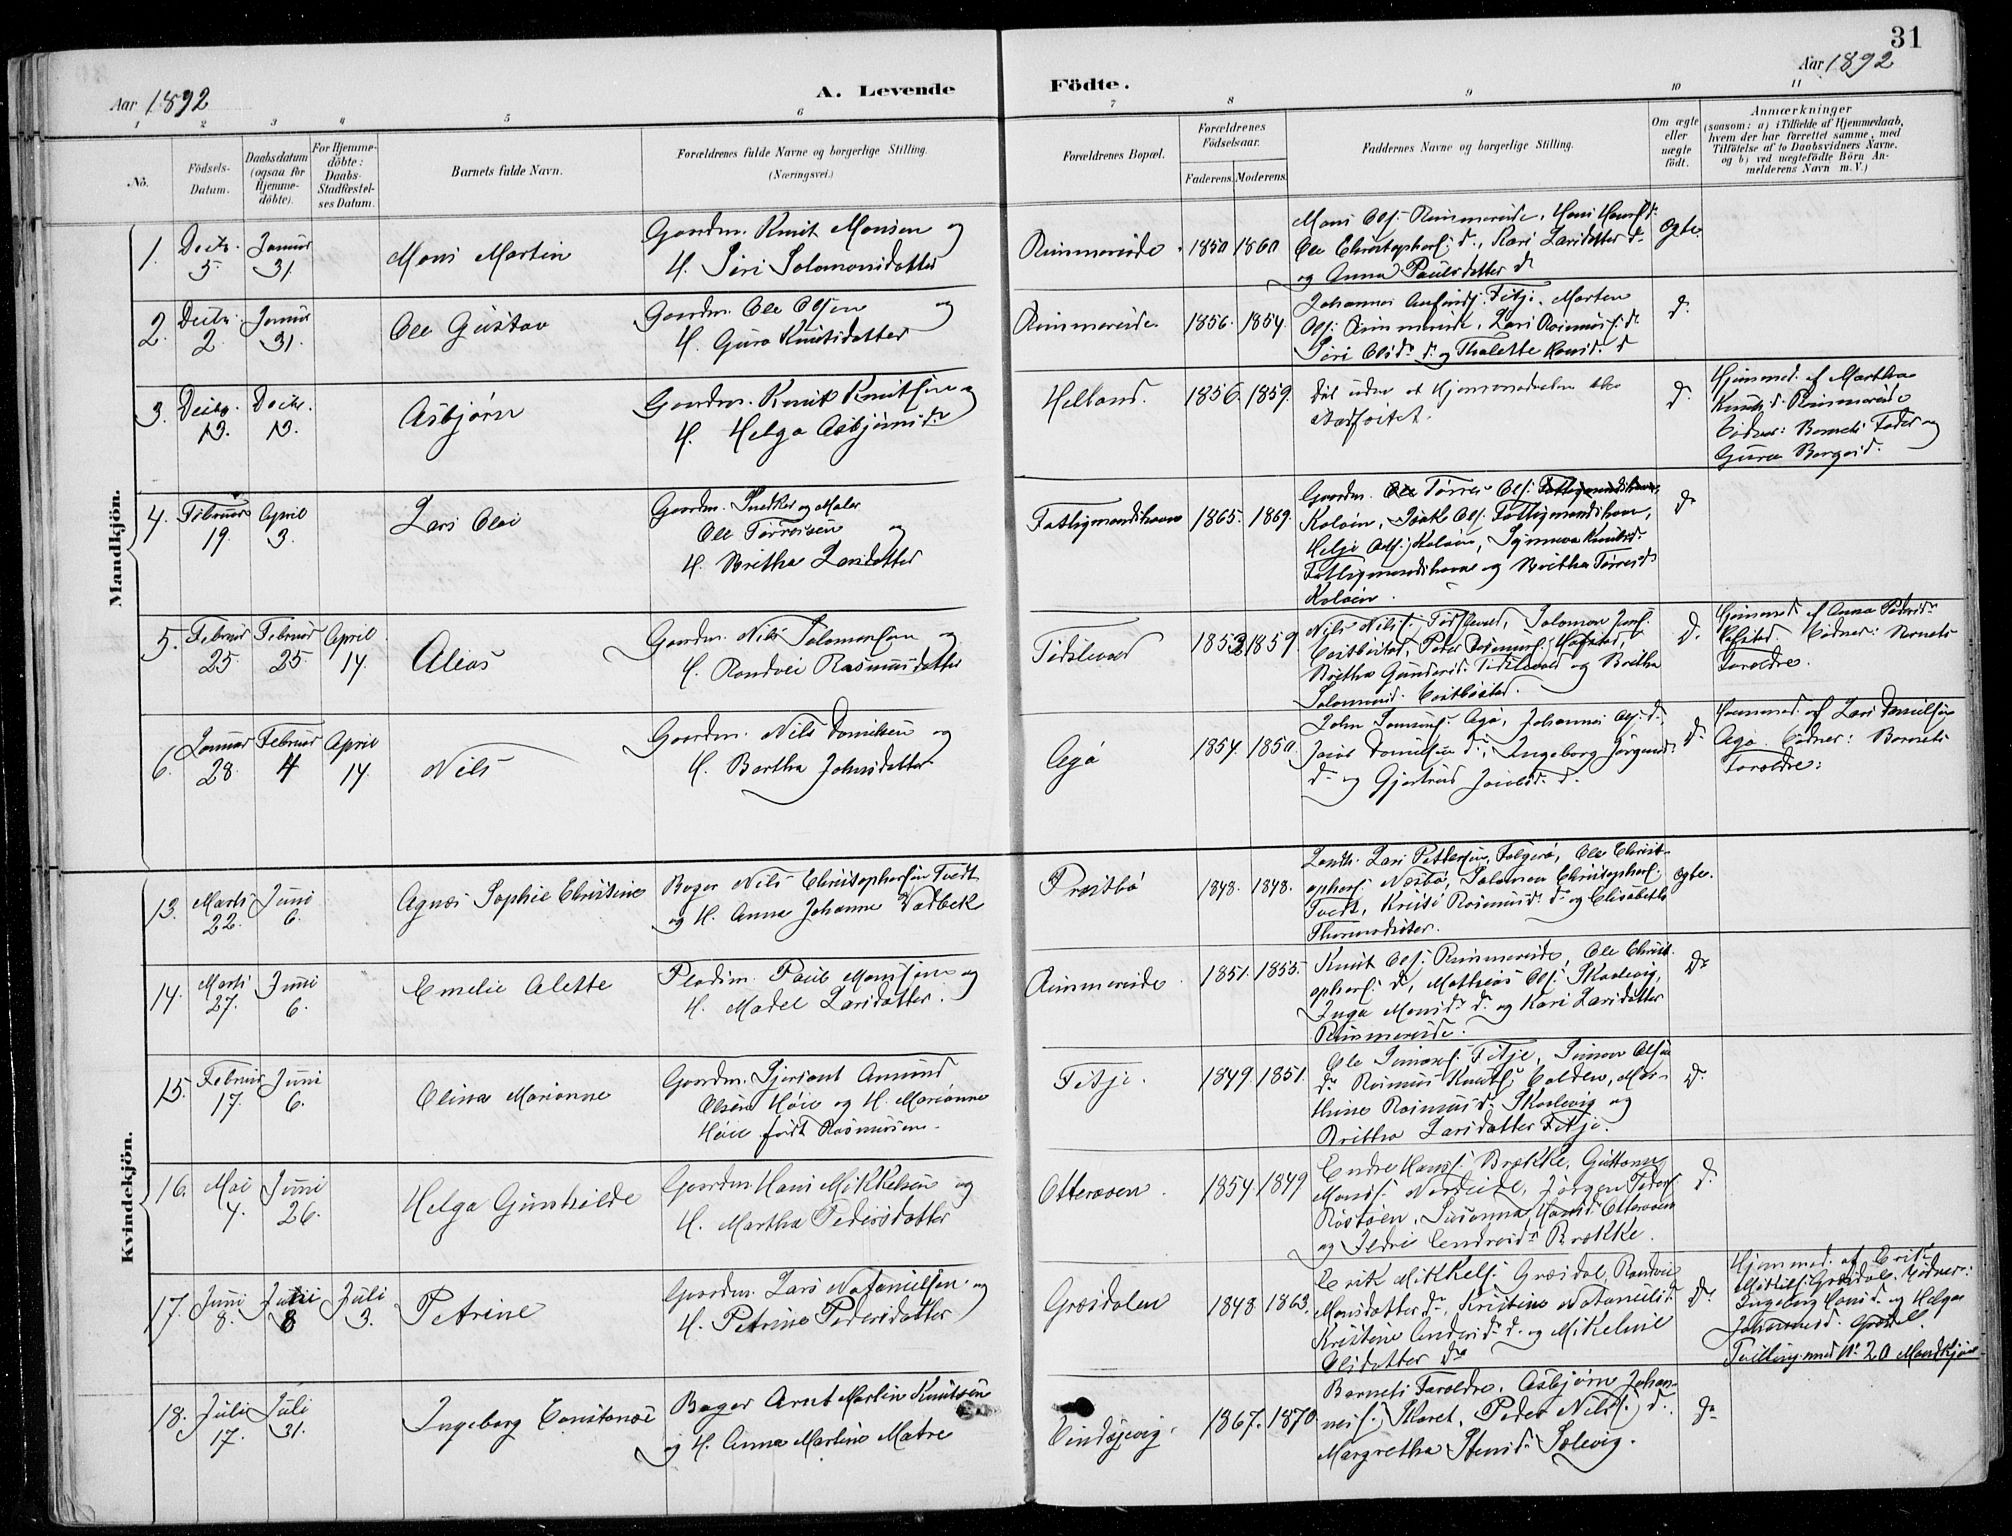 31
Aar 1892
A. Levende
Födte.
Aar 1892
1 2 3 4 5 6 7 8 9 10 11
No.
Födsels-Datum.
Daabsdatum (ogsaa for Hjemme-döbte).
For Hjemme-döbte: Daabs-Stadfæstel-ses Datum.
Barnets fulde Navn.
Forældrenes fulde Navne og borgerlige Stilling.
(Næringsvei.)
Forældrenes Bopæl.
Forældrenes Födselsaar.
Faderens. Moderens.
Faddernes Navne og borgerlige Stilling.
Om ægte eller uægte födt.
Anmærkninger
(saasom: a) i Tilfælde af Hjemmedaab,
hvem der har forrettet samme, med
Tilföielse af to Daabsvidners Navne.
og b) ved uægtefödte Börn An-
melderens Navn m. V.)
Mandkjön.
1. Decbr. 5. Januar 31.
Mons Martin
Gaardm. Knut Monsen og
H. Siri Salomonsdatter
Rimmereide. 1850 1860
Mons Olsf. Rimmereide, Hans Hansf. do
Ole Christophersf. do, Kari Larsdatter do
og Anna Paulsdatter do
Ægte.
2. Decbr. 2. Januar 31.
Ole Gustav
Gaardm. Ole Olsen og
H. Guro Knutsdatter
Rimmereide. 1856. 1854.
Johannes Fitje. Morten
Olsf. Rimmereide, Lars Rasmusf. do
Siri Olsdr. do og Thalette Hansd. do
do.
3. Decbr. 13. Decbr. 13.
Asbjørn
Gaardm. Knut Knutsen og
H. Helga Asbjørnsdr
Helland. 1856. 1859.
Død uden at Hjemmedaaben blev
stadfæstet.
do.
Hjemmed. af Martha
Knutsd. Rimmereide
Vidner: Barnets Fader og
Guro Borgesd.
4. Februar 19. April 3.
Lars Olai
Gaardm. Snedker og Maler
Ole Tørresen og
H. Brita Larsdatter
1865. 1869.
Gaardm. Tørres Olsf.
Koløen, Isak Olsf.
Helje Olsf. Koløen, Synneva Knutsd.
og Britha Tørresd.
Koløen.
do
5. Februar 25. Februar 25 April 14.
Alias
Gaardm. Nils Salomonsen og
H. Randvei Rasmusdatter
1852 1859.
Nils Nilsf. Salomon
Peder Rasmusf. Hofstad,
Britha Gundersd. og Britha
Salomonsd.
do.
Hjemmed. af Anna Pedersdr
Hofstad. Vidner: Barnets
Forældre.
6. Januar 28. Februar 4 April 14.
Nils
Gaardm. Nils Danielsen og
H. Bertha Johnsdatter
Agø 1854. 1850.
John Agø, Johannes Olsf. do.
Jacob Danielsen do. Ingeborg Jørgensd.
do og Gjertrud Jacobsd. do.
do.
Hjemmed. af Lars Danielsen
Agø. Vidner: Barnets
Forældre:
Kvindekjön.
13. Marts 22. Juni 6.
Agnes Sophie Christine
Bager Nils Christophersen Tvedt
og H. Anna Johanne Vadbek
Præstbø 1848. 1848.
Landh. Lars Pettersen, Folgerø, Ole Christ-
ophersf. Næsbø, Salomon Christophersf.
Tvedt, Krisi Rasmusdr. do og Elisabeth
Ægte.
14. Marts 27. Juni 6.
Emelie Alette
Pladsm. Paul Monssen og
H. Madel Larsdatter.
Rimmereide. 1851. 1855.
Knut Olsf. Rimmereide, Ole Christ-
ophersf. do, Mathias Olsf. Skarlevig,
Inga Monsdr. do og Kari Larsdatter
Rimmereide.
do
15. Februar 17. Juni 6.
Olina Marianne
Gaardm. Sjersant Amund
Olsen Høie og H. Marianne
Høie født Rasmussen.
Fitje. 1849. 1851.
Ole Simonsf. Fitje, Simon Olsen
do Rasmus Knutsf. Calden, Mar-
thine Rasmusd. Skarlevig og
Britha Larsdatter Fitje.
do.
16. Mai 4. Juni 26.
Helga Gunhilde
Gaardm. Hans Mikkelsen og
H. Martha Pedersdatter
Otterøen. 1854. 1849
Endre Hansf. Brekke, Guttorm
Monsf. Nordeide, Jørgen Pedersf.
Røstøen, Susanna Hansd. Otterøen
og Sidri Endresdr. Brekke.
do.
17. Juni 8. Juni 8 Juli 3.
Petrine
Gaardm. Lars Natanielsen og
H. Petrine Pedersdatter
Græsdalen 1848 1863.
Erik Mikkelsf. Græsdal, Randvei
Monsdatter do, Kristine Natanielsd.
Kristine Endresdr. do og Mikeline
Olsdatter do
do.
Hjemmed. af Erik
Mikkelsf. Græsdal. Vidner:
Ingeborg Hansd. og Helga
Johannesd. Græsdal.
Tvilling med No 20 Mandkjön
18. Juli 17. Juli 31.
Ingeborg Constanse
Bager Arnt Martin Knutsen
og H. Anna Martine Matre
1867. 1870
Barnets Forældre, Asbjørn Johan-
nesf. Skaret, Peder Nilsf. do.
Margretha Stensd. Solevig.
do